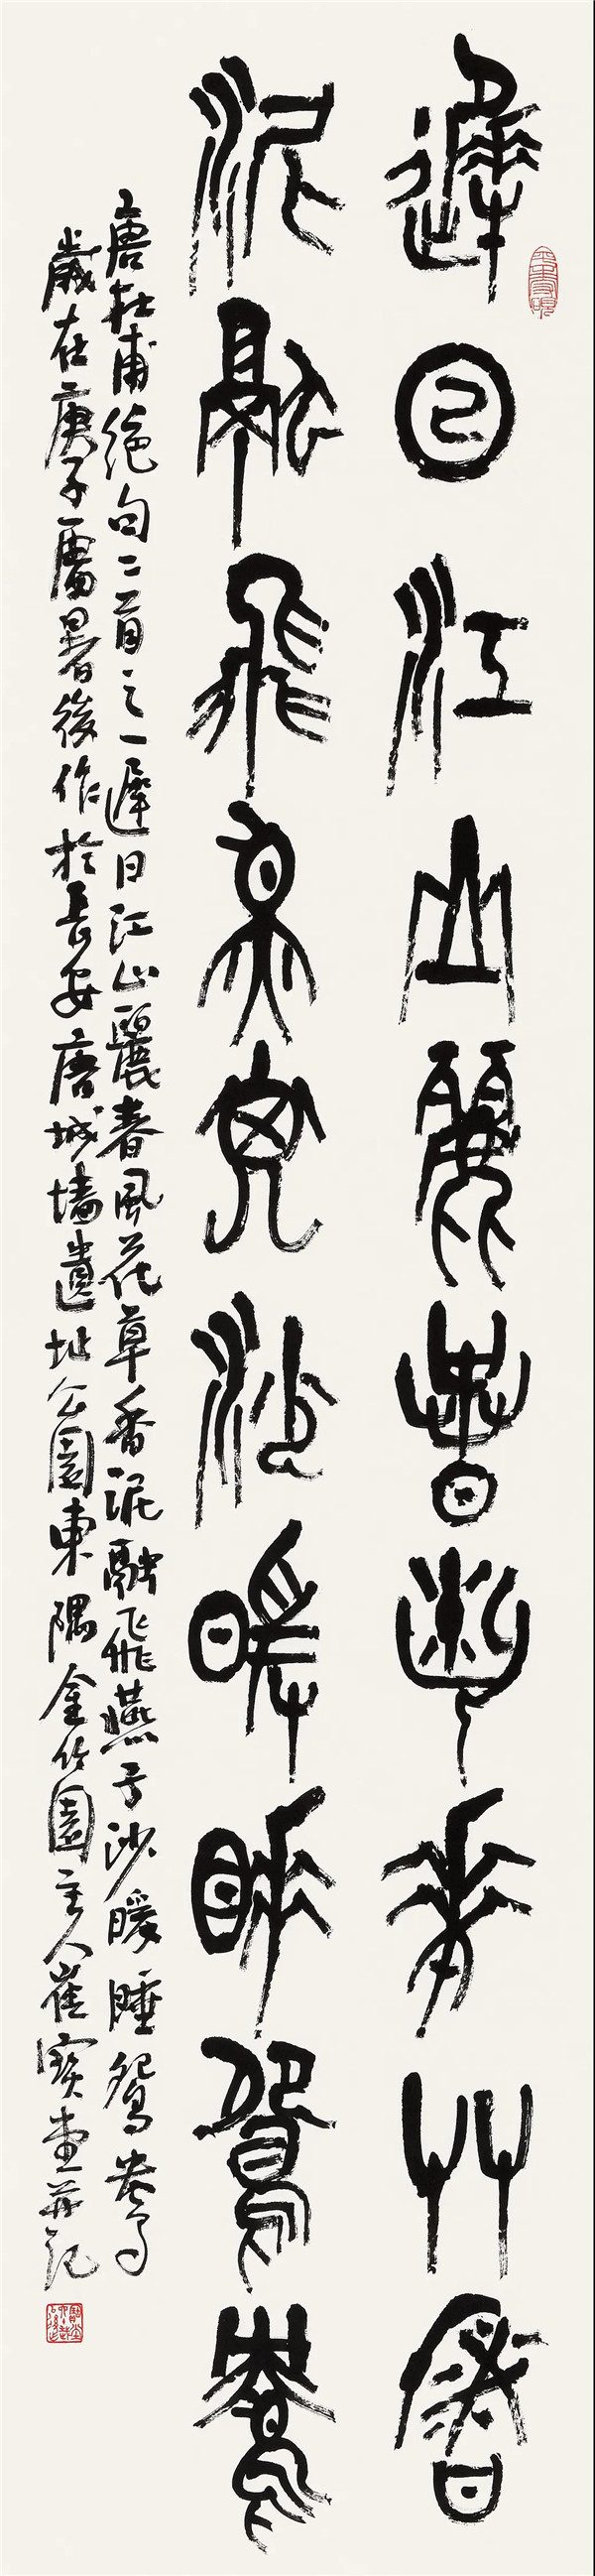 遲日江山麗春風花艸香
泥融飛燕子沙暖睡鴛鴦
唐杜甫絕句二首之一遲日江山麗春風花草香泥融飛燕子沙暖睡鴛鴦
歲在庚子處暑後作於長安唐城墻遺址公園東隅金竹園主人崔寶堂并記